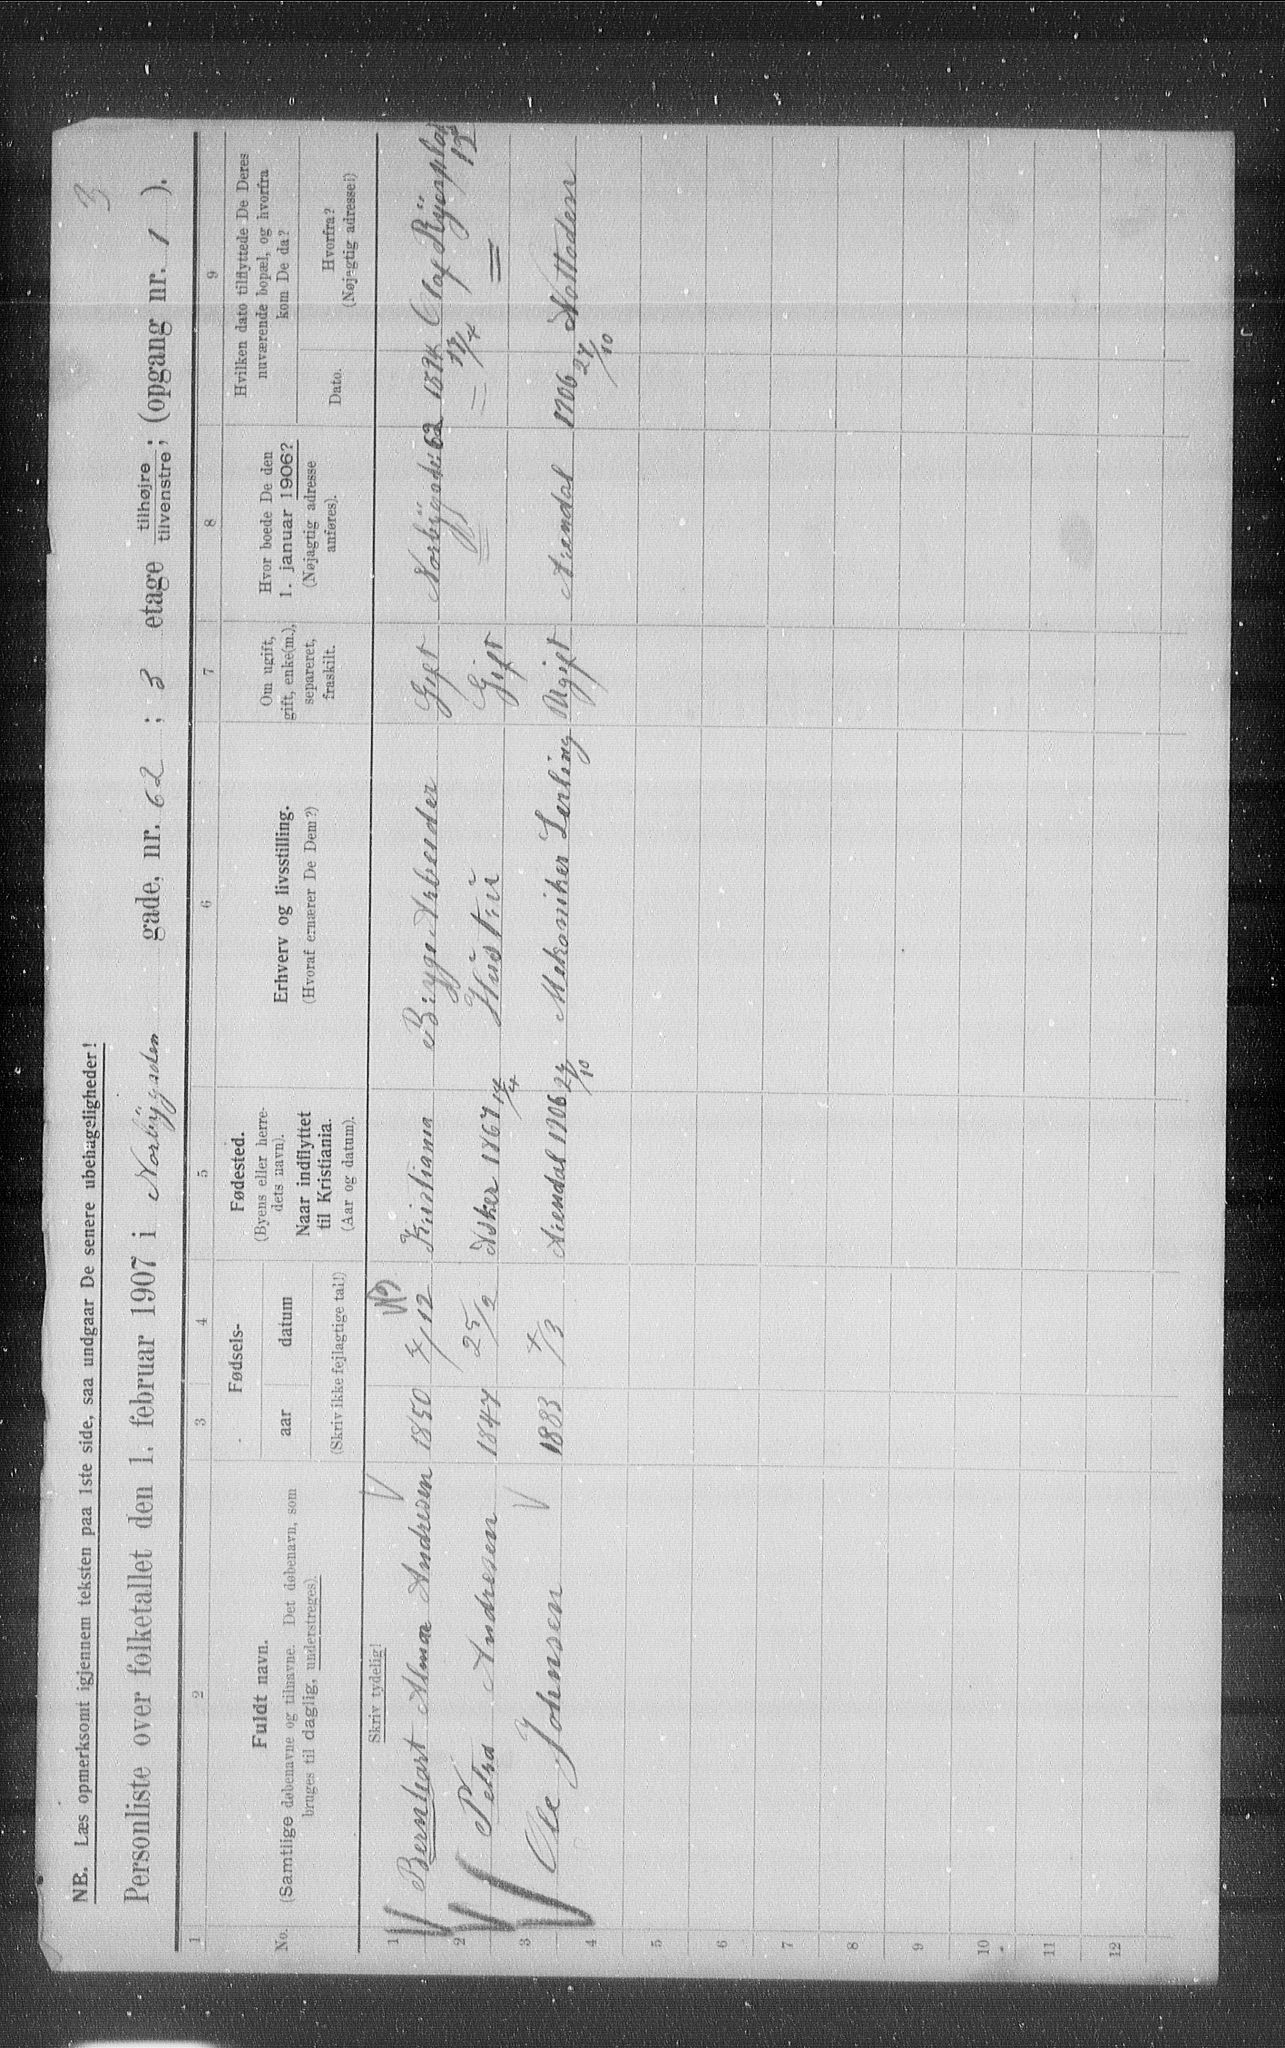 3
NB. Læs opmerksomt igjennem teksten paa 1ste side, saa undgaar De senere ubehageligheder!
Personliste over folketallet den 1. februar 1907 i Norbygaden gade, nr. 62 ; 3 etage tilhøjre tilvenstre ; (opgang nr. 1 ).
1 2 3 4 5 6 7 8 9
No.
Fuldt navn.
(Samtlige døbenavne og tilnavne. Det døbenavn, som
bruges til daglig, understreges).
Fødsels-
aar datum
(Skriv ikke fejlagtige tal!)
Fødested.
(Byens eller herre-
dets navn).
Naar indflyttet
til Kristiania.
(Aar og datum).
Erhverv og livsstilling.
(Hvoraf ernærer De Dem?)
Om ugift,
gift, enke(m.),
separeret,
fraskilt.
Hvor boede De den
1. januar 1906?
(Nøjagtig adresse
anføres).
Hvilken dato tilflyttede De Deres
nuværende bopæl, og hvorfra
kom De da?
Dato.
Hvorfra?
(Nøjagtig adresse!)
Skriv tydelig!
1 Bernhart Andresen 1850 7/12 Kristiania Brygge Arbeider Gift Norbygade 62 1894 Olaf Ryesplas
17/4 12
2 Petra Andresen 1847 25/2 Asker 1867 14/4 Hustru Gift
3 Ole Johnsen 1883 4/3 Arendal 1906 24/10 Mekaniker Lerling Ugift Arendal 1906 24/10 Nottoden
4
5
6
7
8
9
10
11
12